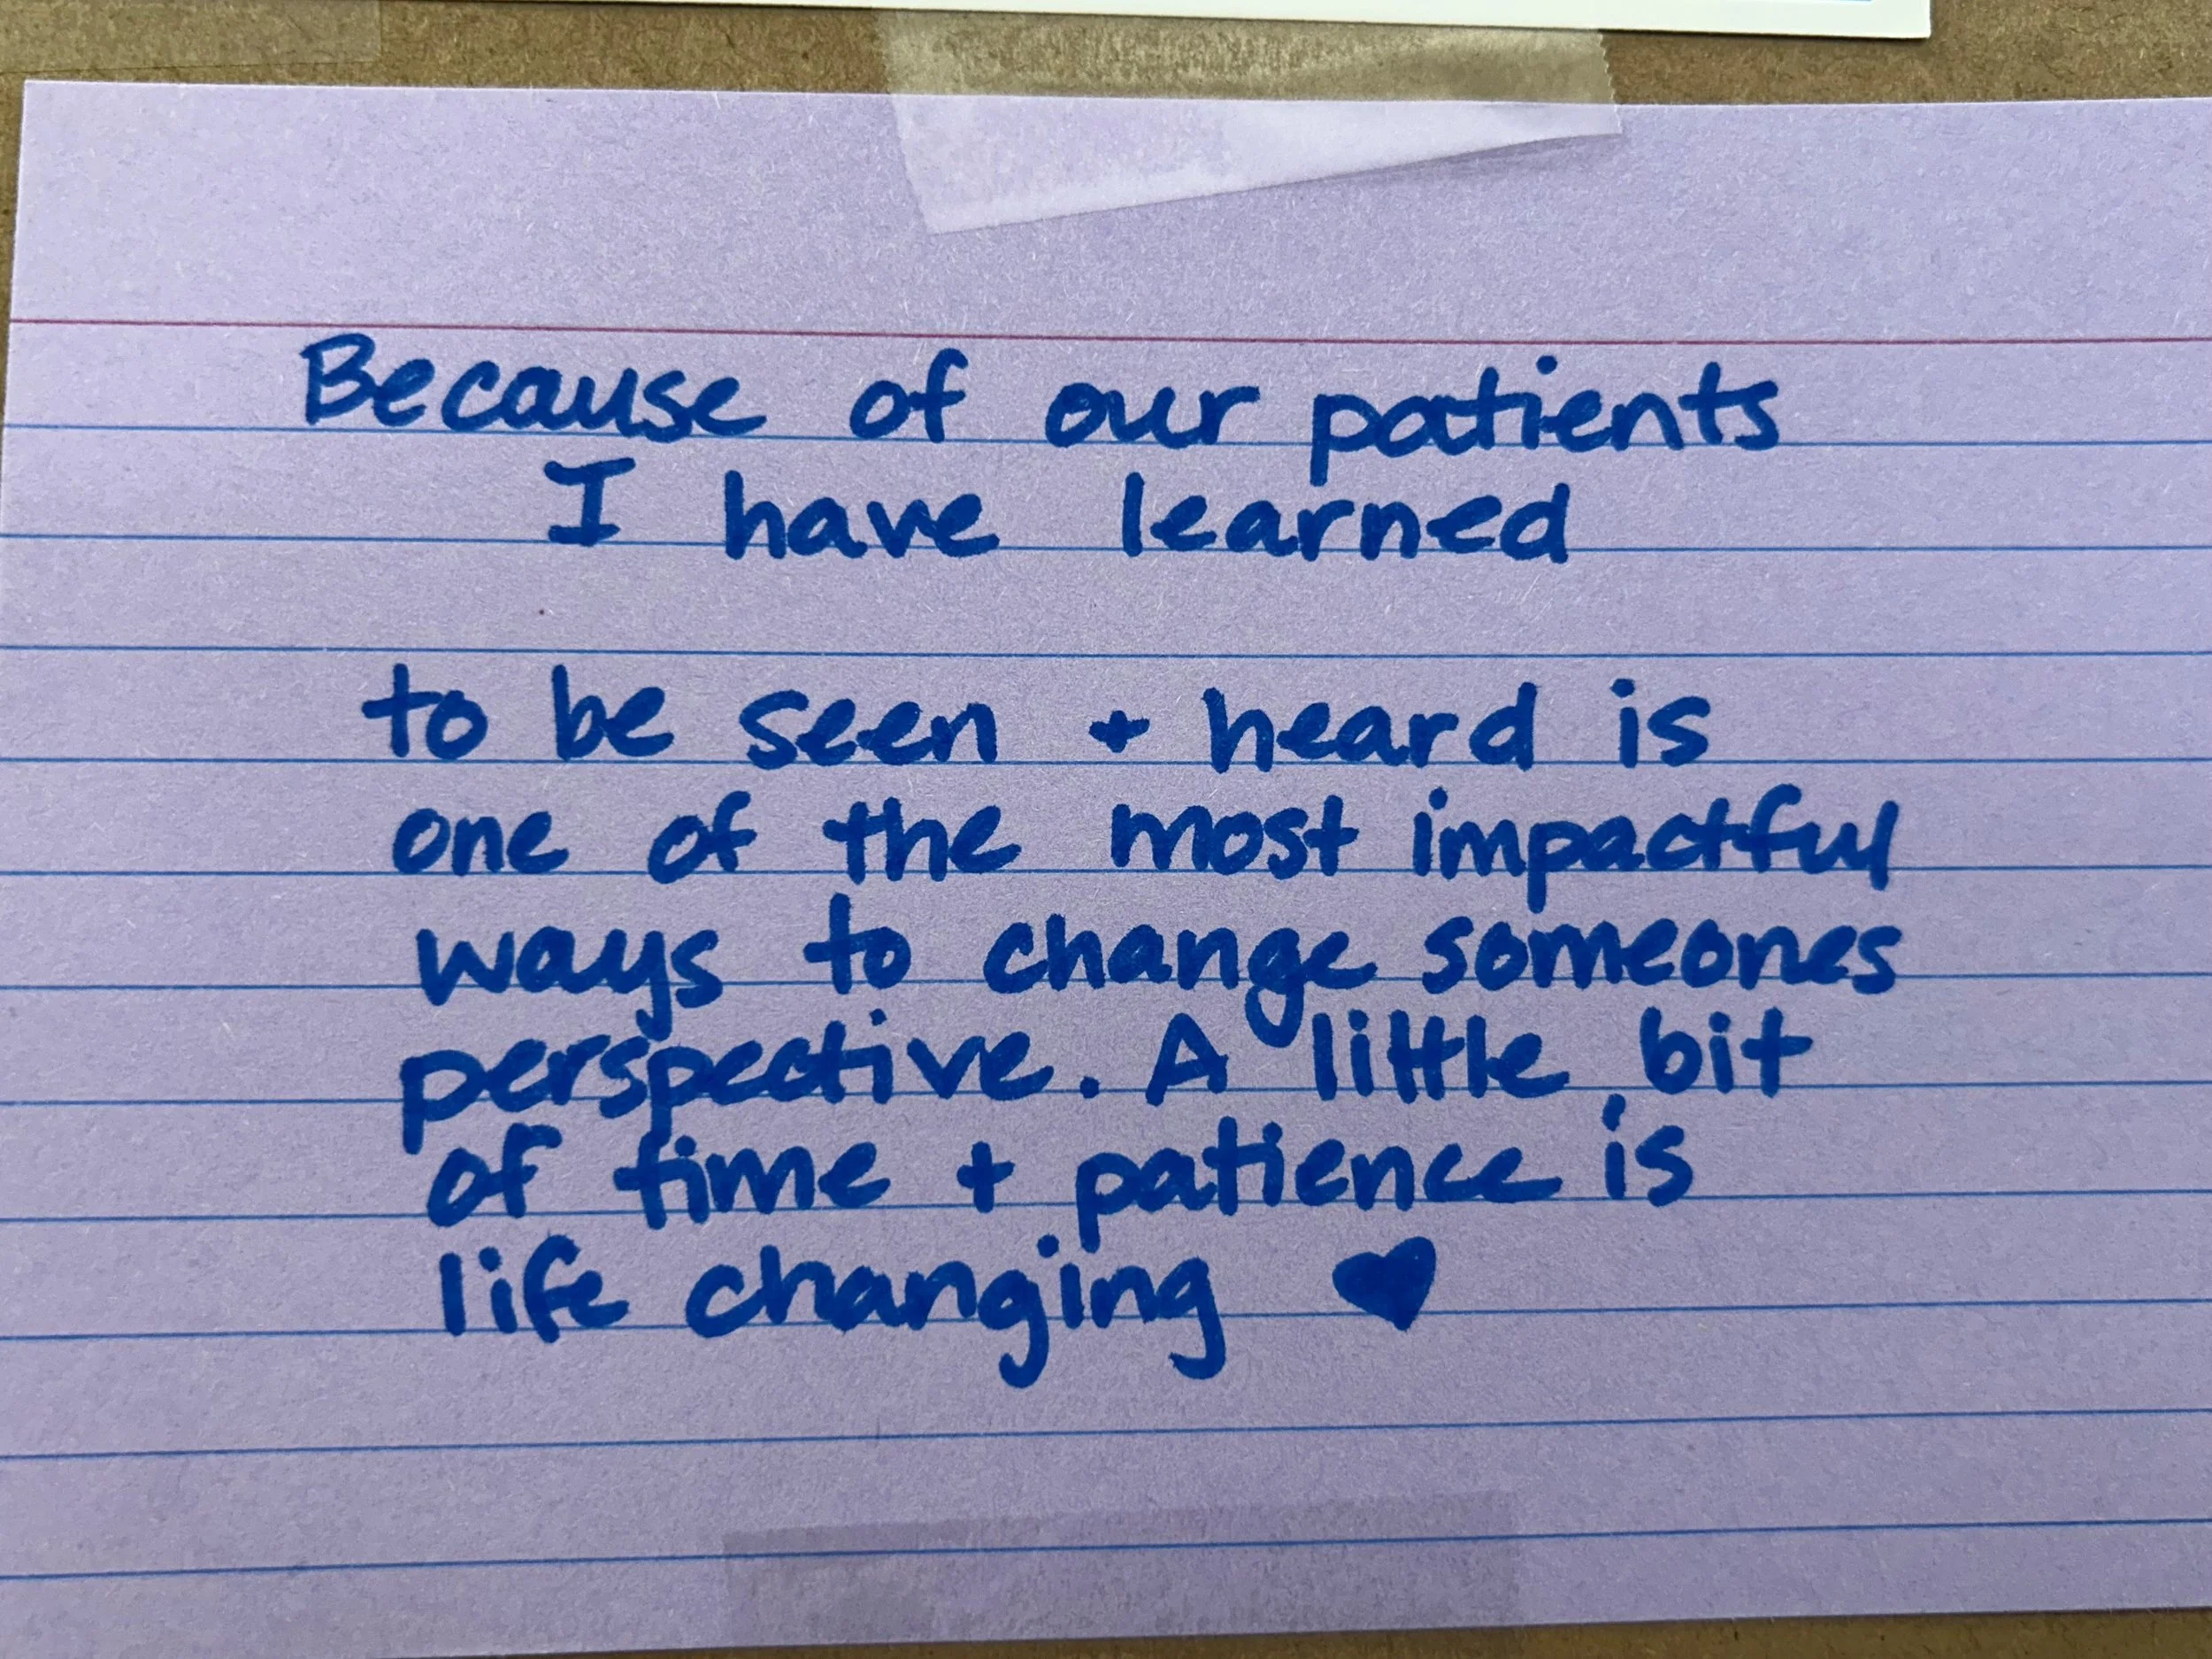 Because of our patients
I have learned
to be seen + heard is
one of the most impactful
ways to change someones
perspective. A little bit
of time + patience is
life changing ♥